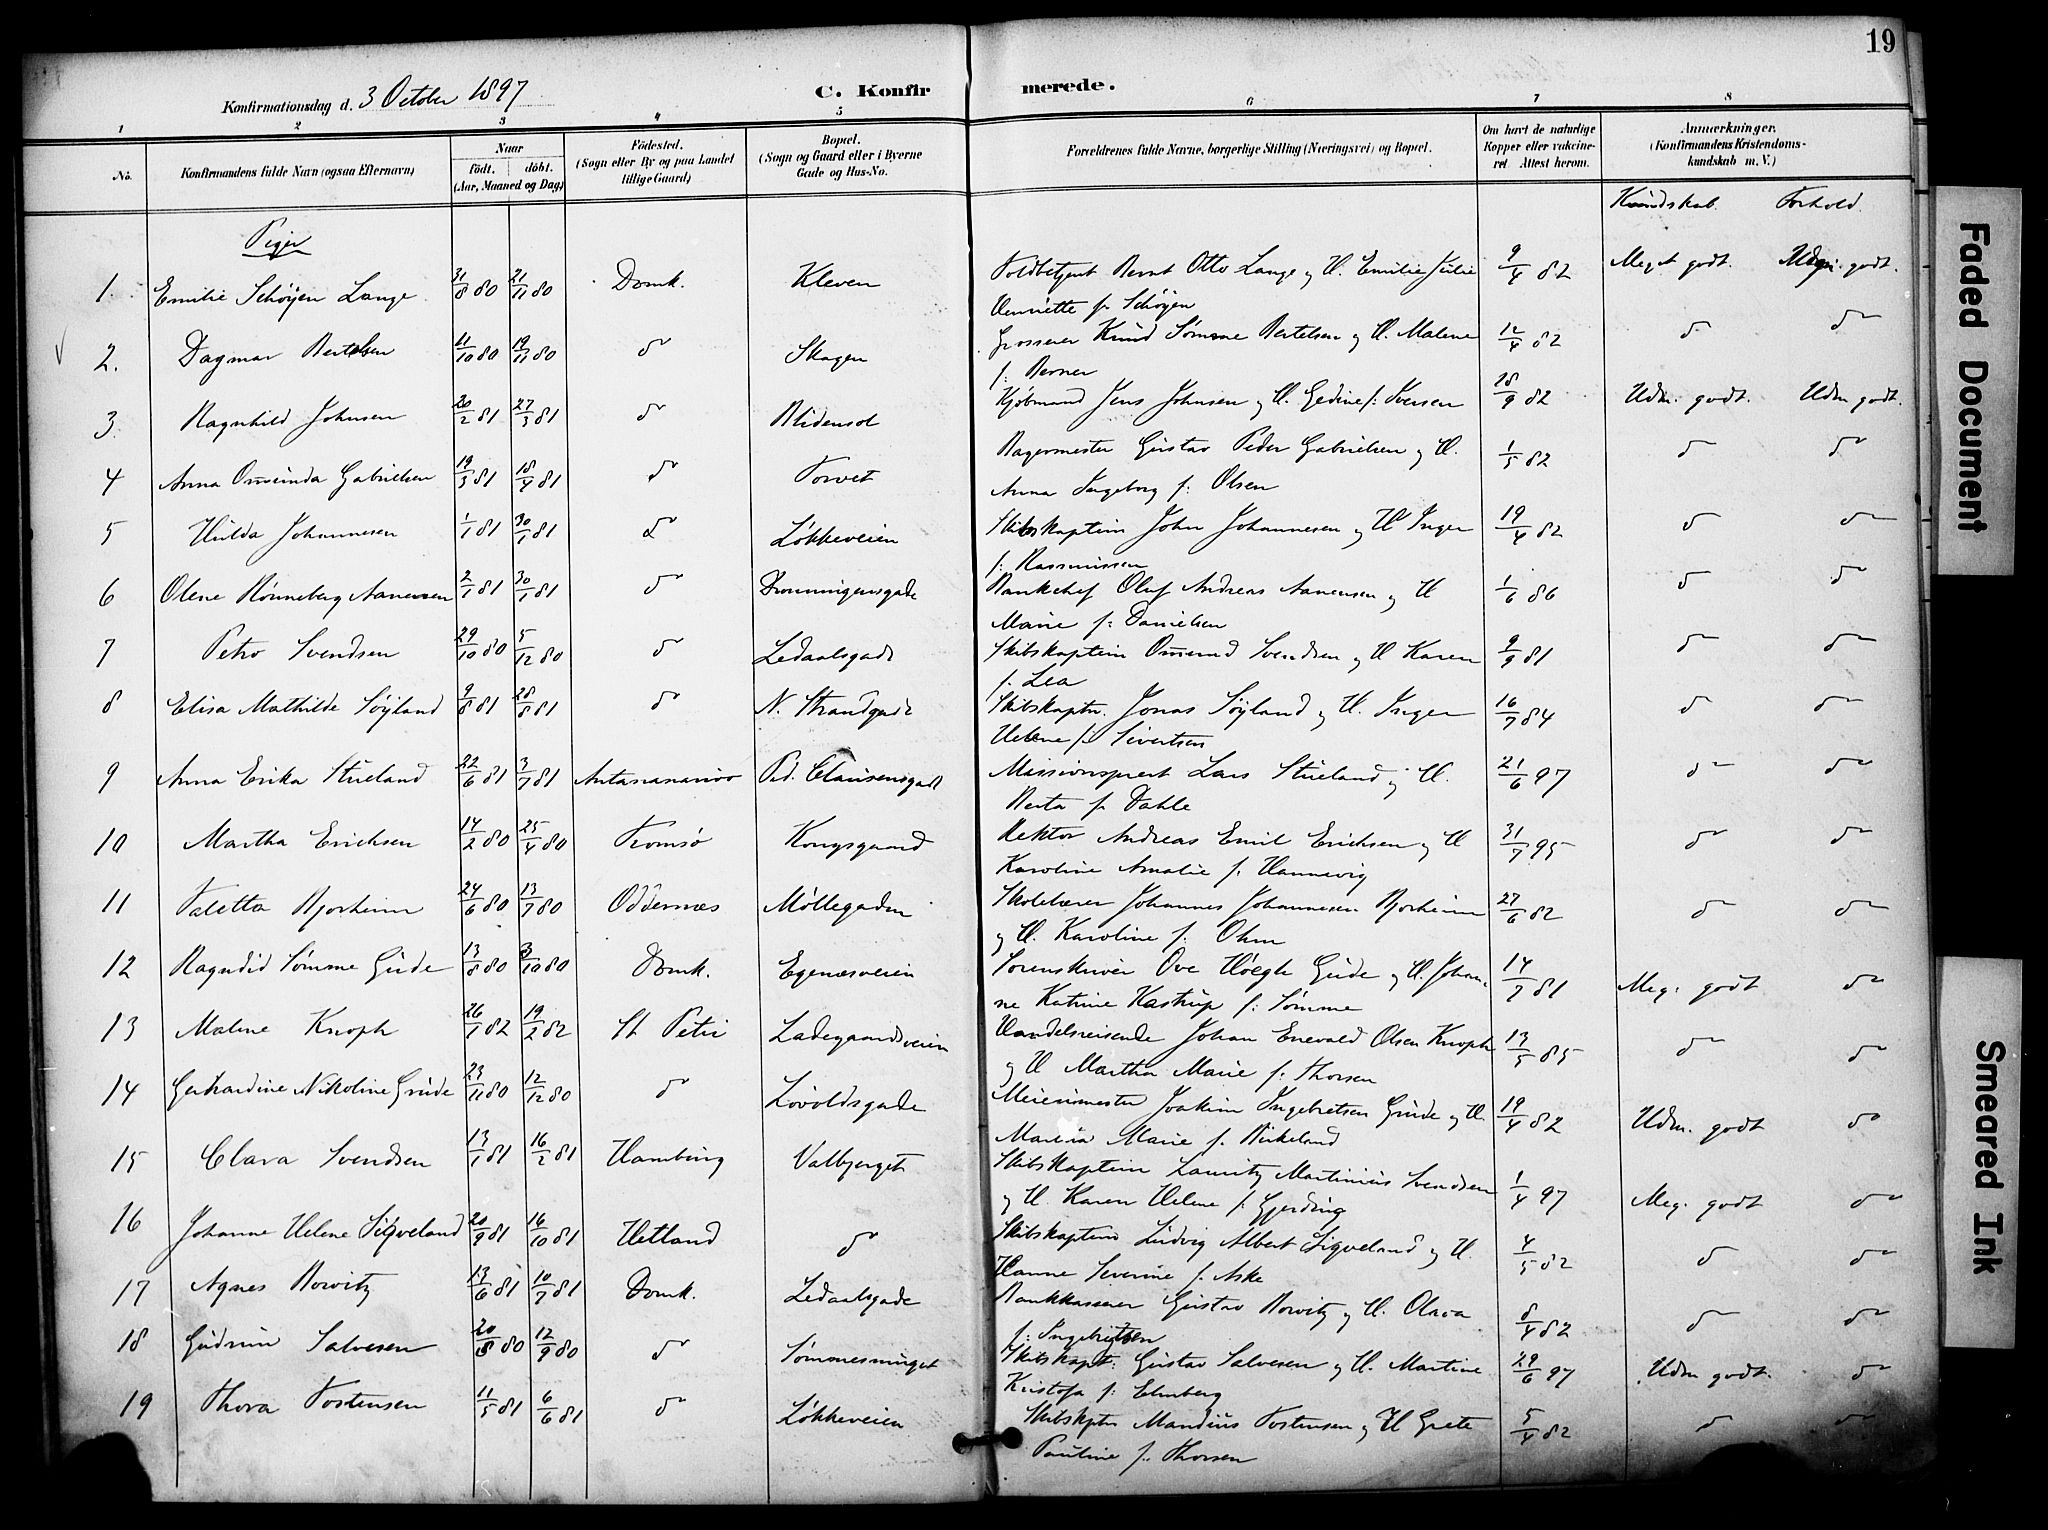 19
Konfirmationsdag d. 3 October 1897
C. Konfirmerede.
1 2 3 4 5 6 7 8
No.
Konfirmandens fulde Navn (ogsaa Efternavn)
Naar
födt. döbt.
(Aar, Maaned og Dag)
Födested.
(Sogn eller By og paa Landet tillige Gaard)
Bopæl.
(Sogn og Gaard eller i Byerne Gade og Hus-No.
Forældrenes fulde Navne, borgerlige Stilling (Næringsvei) og Bopæl.
Om havt de naturlige Kopper eller vakcineret. Attest herom.
Anmærkninger.
(Konfirmandens Kristendomskundskab m. V.)
Kundskab. Forhold.
Piger
1. Emilie Schøyen Lange 31/8 80 21/11 80 Domk. Kleven Toldbetjent Bernt Otto Lange og H. Emilie Julie Henriette f. Schøyen 9/4 82 Meget godt. Udm. godt.
2. Dagmar Bertelsen 11/10 80 19/11 80 do Skagen Grosserer Knud Sømme Bertelsen og H. Malene f: Berner 12/4 82 do do
3. Ragnhild Johnsen 20/2 81 27/3 81 do Blidensol Kjøbmand Jens Johnsen og H. Gedine f: Iversen 18/9 82 Udm. godt. Udm godt.
4 Anna Omunda Gabrielsen 19/3 81 18/4 81 do Torvet Bagermester Gustav Peder Gabrielsen og H. Anna Ingeborg f: Olsen 1/5 82 do do
5 Hulda Johannesen 1/1 81 30/1 81 do Løkkeveien Skibskaptein John Johannesen og H Inger f: Rasmussen 19/4 82 do do
6 Olene Rønneberg Aanensen 2/1 81 30/1 81 do Dronningensgade Bankchef Oluf Andreas Aanensen og H Marie f: Danielsen 1/6 86 do do
7 Petro Svendsen 29/10 80 5/12 80 do Ledaalsgade Skibskaptein Omund Svendsen og H Karen f. Lea 9/9 81 do do
8 Elisa Mathilde Søyland 9/8 81 28/8 81 do N. Strandgade Skibskaptn. Jonas Søyland og H. Inger Helene f. Sivertsen 16/7 84 do do
9 Anna Erika Stueland 22/6 81 3/7 81 Antananarivo Ped. Clausensgade Missionsprest Lars Stueland og H. Berta f. Dahle 21/6 97 do do
10 Martha Erichsen 14/2 80 25/4 80 Tromsø Kongsgaard Rektor Andreas Emil Erichsen og H Karoline Amalie f. Hannevig 31/7 95 do do
11 Taletta Bjorheim 24/6 80 13/7 80 Oddernæs Møllegaden Skolelærer Johannes Johannesen Bjorheim og H. Karoline f. Ohm 27/6 82 do do
12 Ragndid Sømme Gude 13/8 80 3/10 80 Domk. Egenæsveien Sorenskriver Ove Høegh Gude og H. Johanne Katrine Kastrup f: Sømme 14/7 81 Meg. godt do
13 Malene Knoph 26/1 82 19/2 82 St Petri Ladegaardsveien Handelsreisende Johan Enevald Olsen Knoph og H Martha Marie f: Thorsen 13/5 85 do do
14 Gerhardine Nikoline Grude 23/11 80 12/12 80 do Løvoldsgade Meierimester Joakim Ingebretsen Grude og H. Martha Marie f. Birkeland 19/4 82 Udm. godt do
15 Clara Svendsen 13/1 81 16/2 81 Hamburg Valbjerget Skibskaptein Lauritz Martinius Svendsen og H. Karen Helene f. Gjerding 1/4 97 Meg. godt do
16 Johanne Helene Sigveland 20/9 81 16/10 81 Hetland do Skibskaptein Ludvig Albert Sigveland og H. Hanne Severine f. Aske 4/5 82 do do
17 Agnes Rowitz 13/6 81 10/7 81 Domk. Ledaalsgade Bankkasserer Gustav Rowitz og H. Olava f: Ingebretsen 8/4 82 do do
18 Gudrun Salvesen 20/8 80 12/9 80 do Sømmesmuget Skibskapt. Gustav Salvesen og H. Martine Kristofa f: Elmberg 29/6 97 Udm godt. do
19 Thora Tostensen 11/5 81 6/6 81 do Løkkeveien Skibskptn Mandius Tostensen og H Grete Pauline f. Thorsen 5/4 82 do do
Faded Document
Smeared Ink